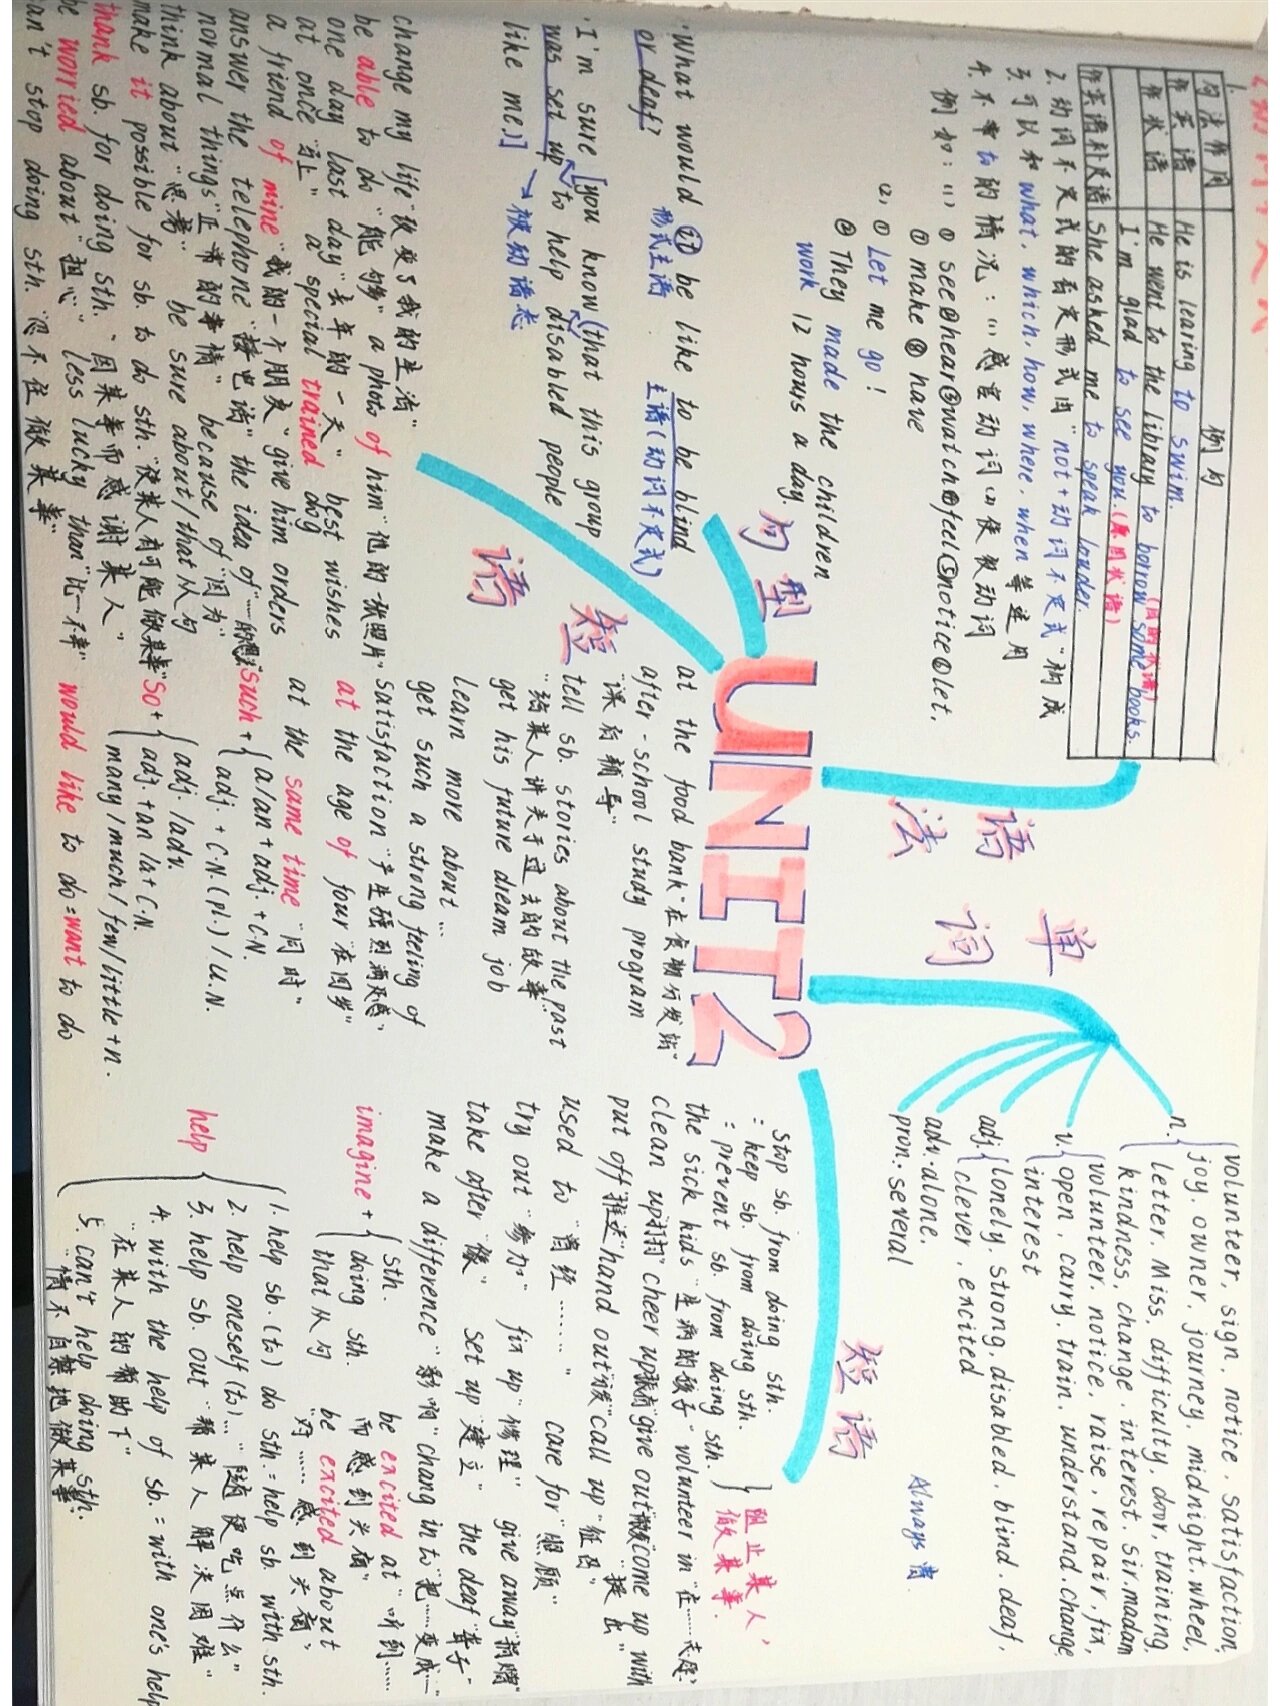 1.
句法作用 例句
作宾语 He is learing to swim.
作状语 He went to the library to borrow some books.
(目的状语)
I'm glad to see you.(原因状语)
作宾语补足语 She asked me to speak louder.
2. 动词不定式的否定形式由"not+动词不定式"构成
3. 可以和what, which, how, where, when等连用
4. 不带to的情况:(1)感官动词(2)使役动词
例如:(1)①see②hear③watch④feel⑤notice⑥let.
⑦make⑧have
(2)①Let me go!
②They made the children
work 12 hours a day.
语法
句型
·What would it be like to be blind
or deaf?
形式主语 主语(动词不定式)
·I'm sure [you know (that this group
was set up to help disabled people
like me.] →被动语态
短语
change my life"改变了我的生活"
be able to do "能够" a photo of him"他的一张照片"
one day last day"去年的一天" best wishes
at once"马上" a special trained dog
a friend of mine"我的一个朋友" give him orders
answer the telephone"接电话" the idea of"……的想法"
normal things"正常的事情" because of"因为"
think about"思考" be sure about/that从句
make it possible for sb. to do sth."使某人有可能做某事"
thank sb. for doing sth."因某事而感谢某人"
be worried about"担心" less lucky than"比…不幸"
can't stop doing sth."忍不住做某事"
UNIT2
at the food bank"在食物分发站"
after-school study program
"课后辅导"
tell sb. stories about the past
"给某人讲关于过去的故事"
get his future dream job
learn more about…
get such a strong feeling of
satisfaction"产生强烈满足感"
at the age of four"在四岁"
at the same time"同时"
such+{a/an+adj.+C.N.
adj.+C.N.(pl.)/U.N.
so+{adj./adv.
adj.+an/a+C.N.
many/much/few/little+n.
would like to do=want to do
单词
n.{volunteer, sign, notice, satisfaction,
joy, owner, journey, midnight, wheel,
letter, Miss, difficulty, door, training,
kindness, change, interest, sir, madam
v.{volunteer, notice, raise, repair, fix,
open, carry, train, understand, change,
interest
adj.{lonely, strong, disabled, blind, deaf,
clever, excited
adv. alone,
pron. several
Always清
短语
stop sb. from doing sth.
=keep sb. from doing sth.
=prevent sb. from doing sth.
}阻止某人,
做某事.
the sick kids"生病的孩子" volunteer in"在……志愿"
clean up"打扫" cheer up give out come up with
put off"推迟" hand out"分发" call up"征召" "提出"
used to"曾经……" care for"照顾"
try out"参加" fix up"修理" give away"捐赠"
take after"像" set up"建立" the deaf"聋子"
make a difference"影响" chang in to"把……变成…"
imagine+{sth.
doing sth.
that从句
be excited at"听到……
而感到头痛"
be excited about
"对……感到头痛"
help{1. help sb.(to) do sth.=help sb. with sth.
2. help oneself(to)…"随便吃点什么"
3. help sb. out"帮某人解决困难"
4. with the help of sb.=with one's help
"在某人的帮助下"
5. can't help doing sth.
"情不自禁地做某事"